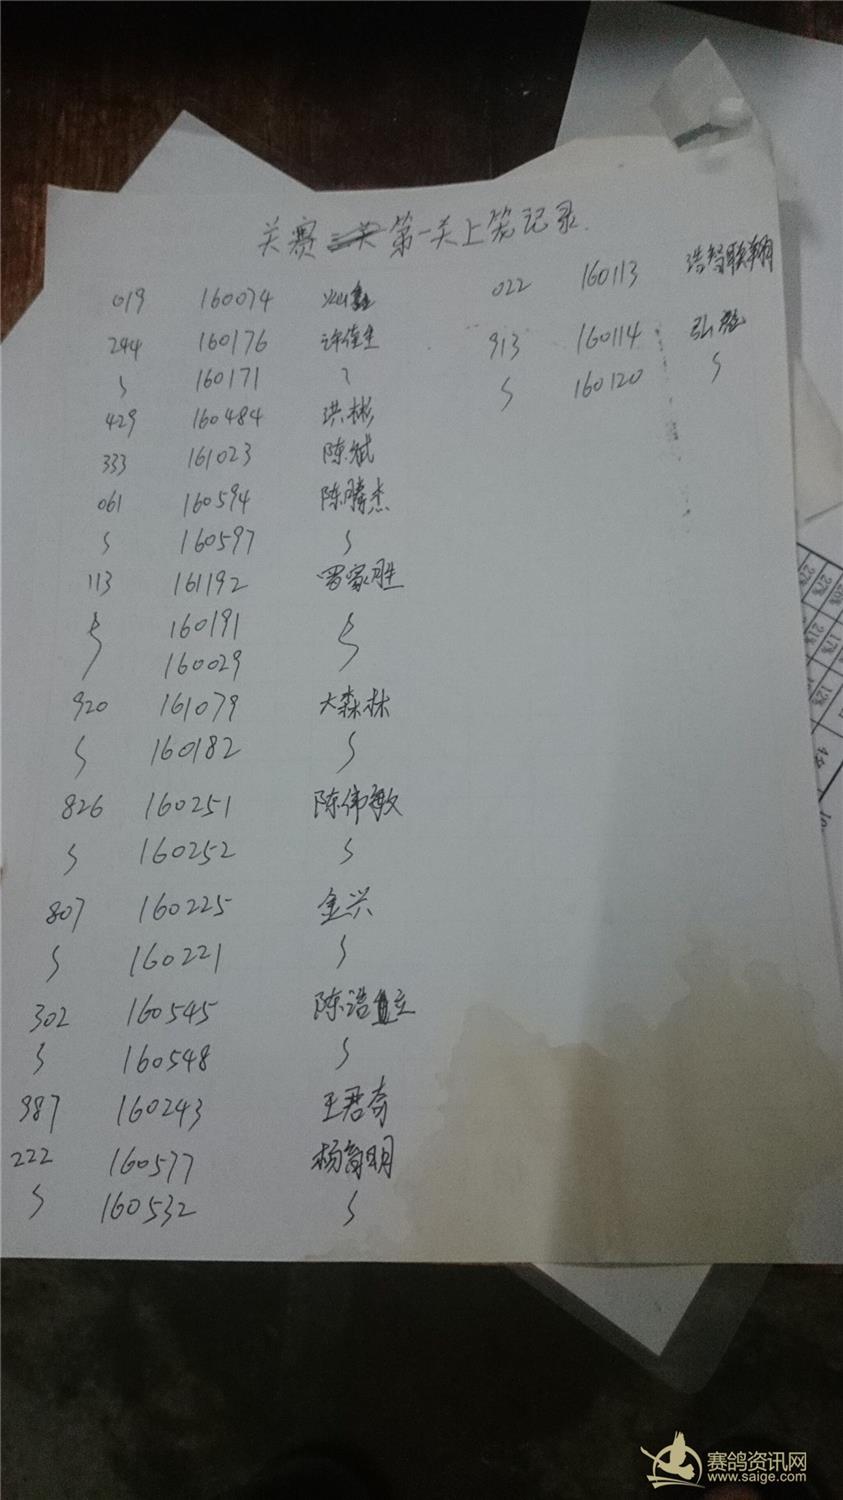 关赛 第一关上笼记录.
019 160074
244 160176 许佳生
〃 160171 〃
429 160484 洪彬
333 161023 陈斌
061 160594 陈腾杰
〃 160597 〃
113 161192 罗家胜
〃 160191 〃
〃 160029 〃
920 161079 大森林
〃 160182 〃
826 160251 陈伟敏
〃 160252 〃
807 160225 金兴
〃 160221 〃
302 160545 陈浩
〃 160548 〃
987 160243 王君奇
222 160577 杨育明
〃 160532 〃
022 160113 浩智联翔
913 160114
〃 160120 〃
赛鸽资讯网
www.saige.com